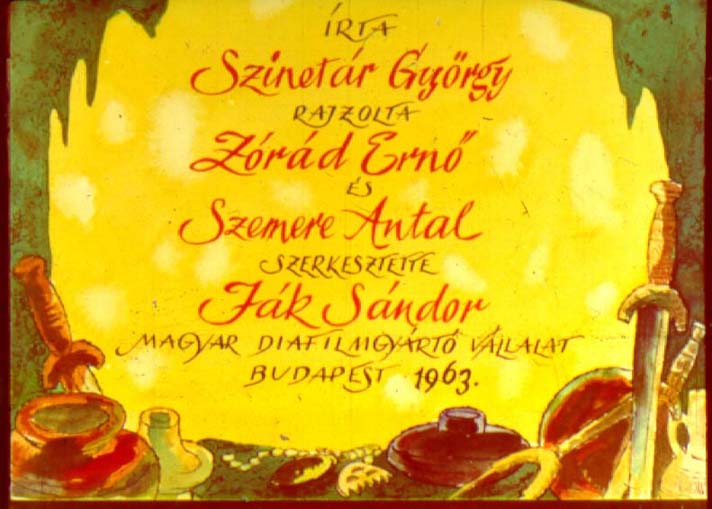 ÍRTA
Szinetár György
RAJZOLTA
Zórád Ernő
ÉS
Szemere Antal
SZERKESZTETTE
Ják Sándor
MAGYAR DIAFILMGYÁRTÓ VÁLLALAT
BUDAPEST 1963.